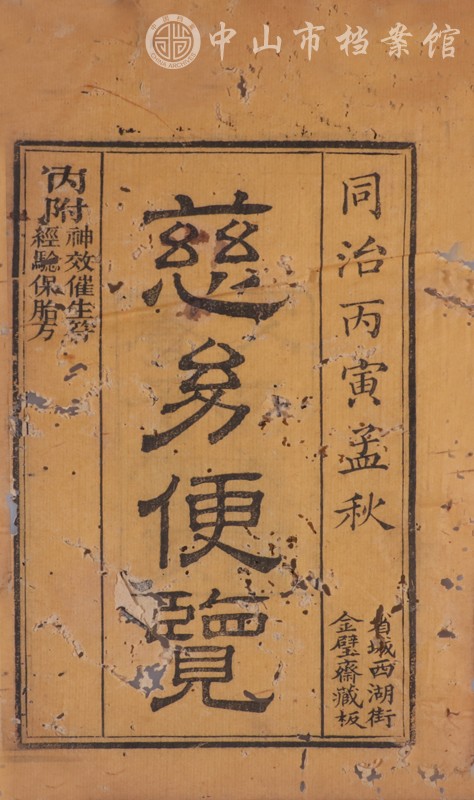 中山市档案馆
同治丙寅孟秋
省城西湖街
金璧齋藏板
慈幼便覽
內附
神效催生等
經驗保胎方